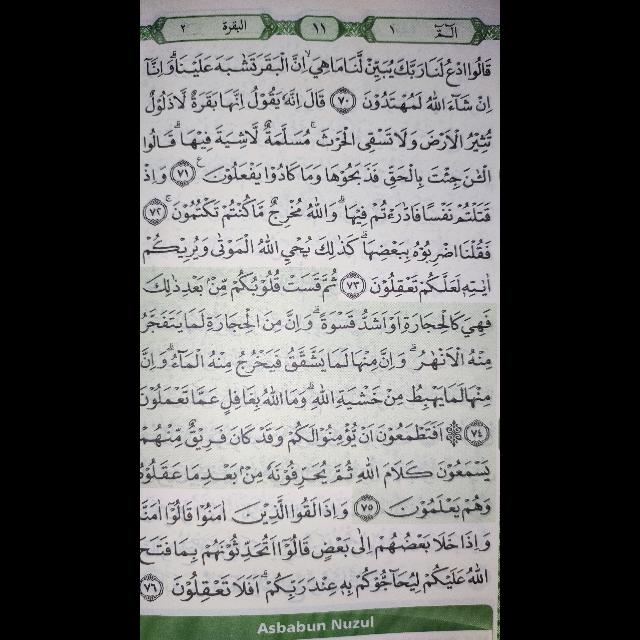 الٓمّٓ ١ ١١ البقرة ٢
قَالُوا ادْعُ لَنَا رَبَّكَ يُبَيِّنْ لَّنَا مَا هِيَۙ اِنَّ الْبَقَرَ تَشٰبَهَ عَلَيْنَاۗ وَاِنَّآ
اِنْ شَاۤءَ اللّٰهُ لَمُهْتَدُوْنَ ٧٠ قَالَ اِنَّهٗ يَقُوْلُ اِنَّهَا بَقَرَةٌ لَّا ذَلُوْلٌ
تُثِيْرُ الْاَرْضَ وَلَا تَسْقِى الْحَرْثَۚ مُسَلَّمَةٌ لَّاشِيَةَ فِيْهَاۗ قَالُوا
الْـٰٔنَ جِئْتَ بِالْحَقِّۗ فَذَبَحُوْهَا وَمَا كَادُوْا يَفْعَلُوْنَ ٧١ وَاِذْ
قَتَلْتُمْ نَفْسًا فَادّٰرَءْتُمْ فِيْهَاۗ وَاللّٰهُ مُخْرِجٌ مَّا كُنْتُمْ تَكْتُمُوْنَۚ ٧٢
فَقُلْنَا اضْرِبُوْهُ بِبَعْضِهَاۗ كَذٰلِكَ يُحْيِ اللّٰهُ الْمَوْتٰى وَيُرِيْكُمْ
اٰيٰتِهٖ لَعَلَّكُمْ تَعْقِلُوْنَ ٧٣ ثُمَّ قَسَتْ قُلُوْبُكُمْ مِّنْۢ بَعْدِ ذٰلِكَ
فَهِيَ كَالْحِجَارَةِ اَوْ اَشَدُّ قَسْوَةًۗ وَاِنَّ مِنَ الْحِجَارَةِ لَمَا يَتَفَجَّرُ
مِنْهُ الْاَنْهٰرُۗ وَاِنَّ مِنْهَا لَمَا يَشَّقَّقُ فَيَخْرُجُ مِنْهُ الْمَاۤءُۗ وَاِنَّ
مِنْهَا لَمَا يَهْبِطُ مِنْ خَشْيَةِ اللّٰهِۗ وَمَا اللّٰهُ بِغَافِلٍ عَمَّا تَعْمَلُوْنَ
٧٤ ۞ اَفَتَطْمَعُوْنَ اَنْ يُّؤْمِنُوْا لَكُمْ وَقَدْ كَانَ فَرِيْقٌ مِّنْهُمْ
يَسْمَعُوْنَ كَلَامَ اللّٰهِ ثُمَّ يُحَرِّفُوْنَهٗ مِنْۢ بَعْدِ مَا عَقَلُوْهُ
وَهُمْ يَعْلَمُوْنَ ٧٥ وَاِذَا لَقُوا الَّذِيْنَ اٰمَنُوْا قَالُوْٓا اٰمَنَّا
وَاِذَا خَلَا بَعْضُهُمْ اِلٰى بَعْضٍ قَالُوْٓا اَتُحَدِّثُوْنَهُمْ بِمَا فَتَحَ
اللّٰهُ عَلَيْكُمْ لِيُحَاۤجُّوْكُمْ بِهٖ عِنْدَ رَبِّكُمْۗ اَفَلَا تَعْقِلُوْنَ ٧٦
Asbabun Nuzul